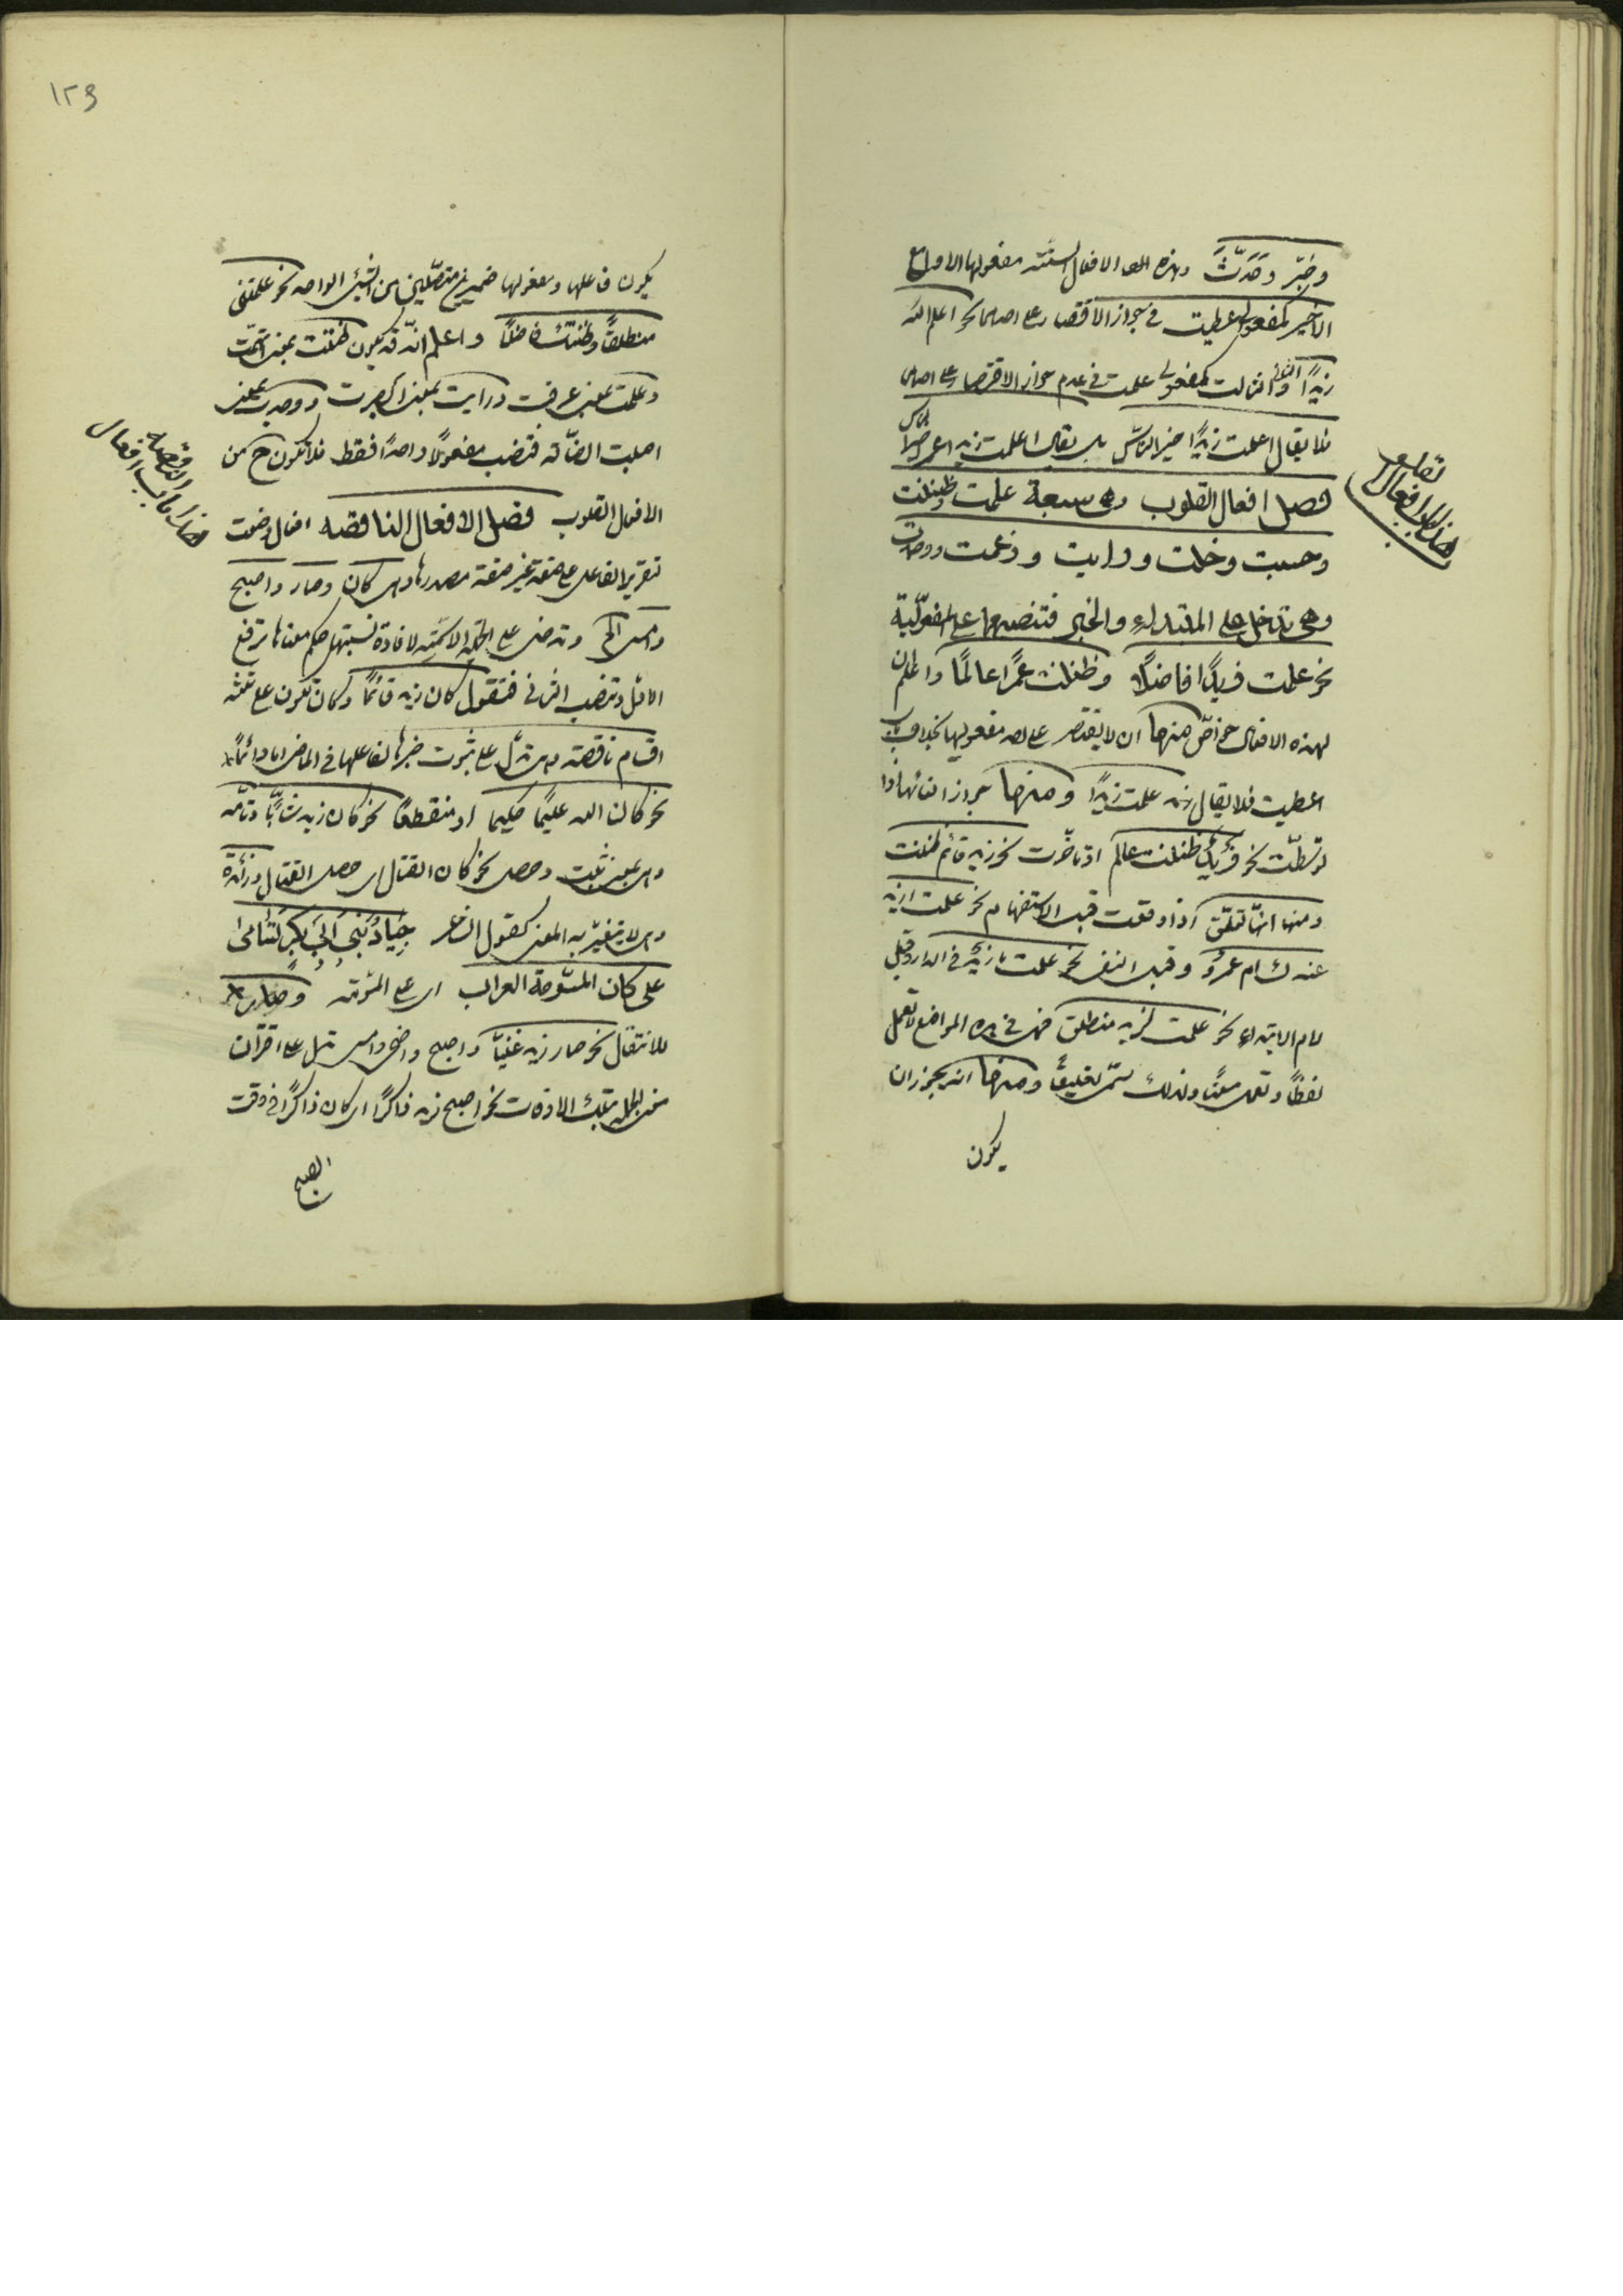 وخبّر وحَدَّثَ وهذه الافعال الستّة مفعولها الاول مع
الاخير كمفعولى اعطيت فى جواز الاقتصار على احدهما نحو اعلم اللّه
زيدًا والثانى والثالث كمفعولى علمت فى عدم جواز الاقتصار على احدهما
فلا يقال اعلمت زيدًا خير الناس بل يقال اعلمت زيدا عمرا خير الناس
هذا باب افعال القلوب
فصل افعال القلوب وهى سبعة علمت وظننت
وحسبت وخلت ورايت وزعمت ووجدت
وهى تدخل على المبتداء والخبر فتنصبهما على المفعوليّة
نحو علمت زيدًا فاضلًا وظننت عمرًا عالمًا واعلم ان
لهذه الافعال خواصّ منها ان لا يقتصر على احد مفعوليها بخلاف باب
اعطيت فلا يقال علمت زيدًا ومنها جواز الغائها اذا
توسّطت نحو زيدٌ ظننت عالم او تاخّرت نحو زيد قائم ظننت
ومنها انّها تعلّق اذا وقعت قبل الاستفهام نحو علمت ازيد
عندك ام عمروٌ وقبل النفى نحو علمت ما زيدٌ فى الدار وقبل
لام الابتداء نحو علمت لزيد منطلق فهى فى هذه المواضع لا تعمل
لفظًا وتعمل معنًا ولذلك سمّى تعليقًا ومنها انه يجوز ان
يكون
١٢٩
يكون فاعلها ومفعولها ضميرين متصّلين من الشيئ الواحد نحو علمتنى
منطلقًا وظننتك فاضلًا واعلم انّه قد يكون ظننت بمعنى اتّهمت
وعلمت بمعنى عرفت ورايت بمعنى ابصرت ووجدت بمعنى
اصبت الضّالة فتنصب مفعولًا واحدًا فقط فلا تكون ح من
هذا باب افعال الناقصه
الافعال القلوب فصل الافعال الناقصه افعال وضعت
لتقرير الفاعل على صفة غير صفة مصدرها وهى كان وصار واصبح
وامسى الخ وتدخل على الجملة الاسميّة لافادة نسبتها حكم معناها ترفع
الاوّل وتنصب الثانى فتقول كان زيد قائمًا وكان تكون على ثلثة
اقسام ناقصة وهى تدّل على ثبوت خبرها لفاعلها فى الماضى امّا دائمًا
نحو كان الله عليمًا حكيما او منقطعًا نحو كان زيد شابًّا وتامّه
وهى بمعنى ثبت وحصل نحو كان القتال اى حصل القتال وزائدة
وهى لا يتغيّر به المعنى كقول الشاعر جِيَادُ بَنِي اَبِي بَكْرٍ تَسَامىٰ
على كان المسّومة العراب اى على المسّومة وصار
للانتقال نحو صار زيد غنيًّا واصبح واضحى وامسى تدل على اقتران
معنى الجملة بتلك الاوقات نحو اصبح زيد ذاكرًا اى كان ذاكرًا فى وقت
الصبح